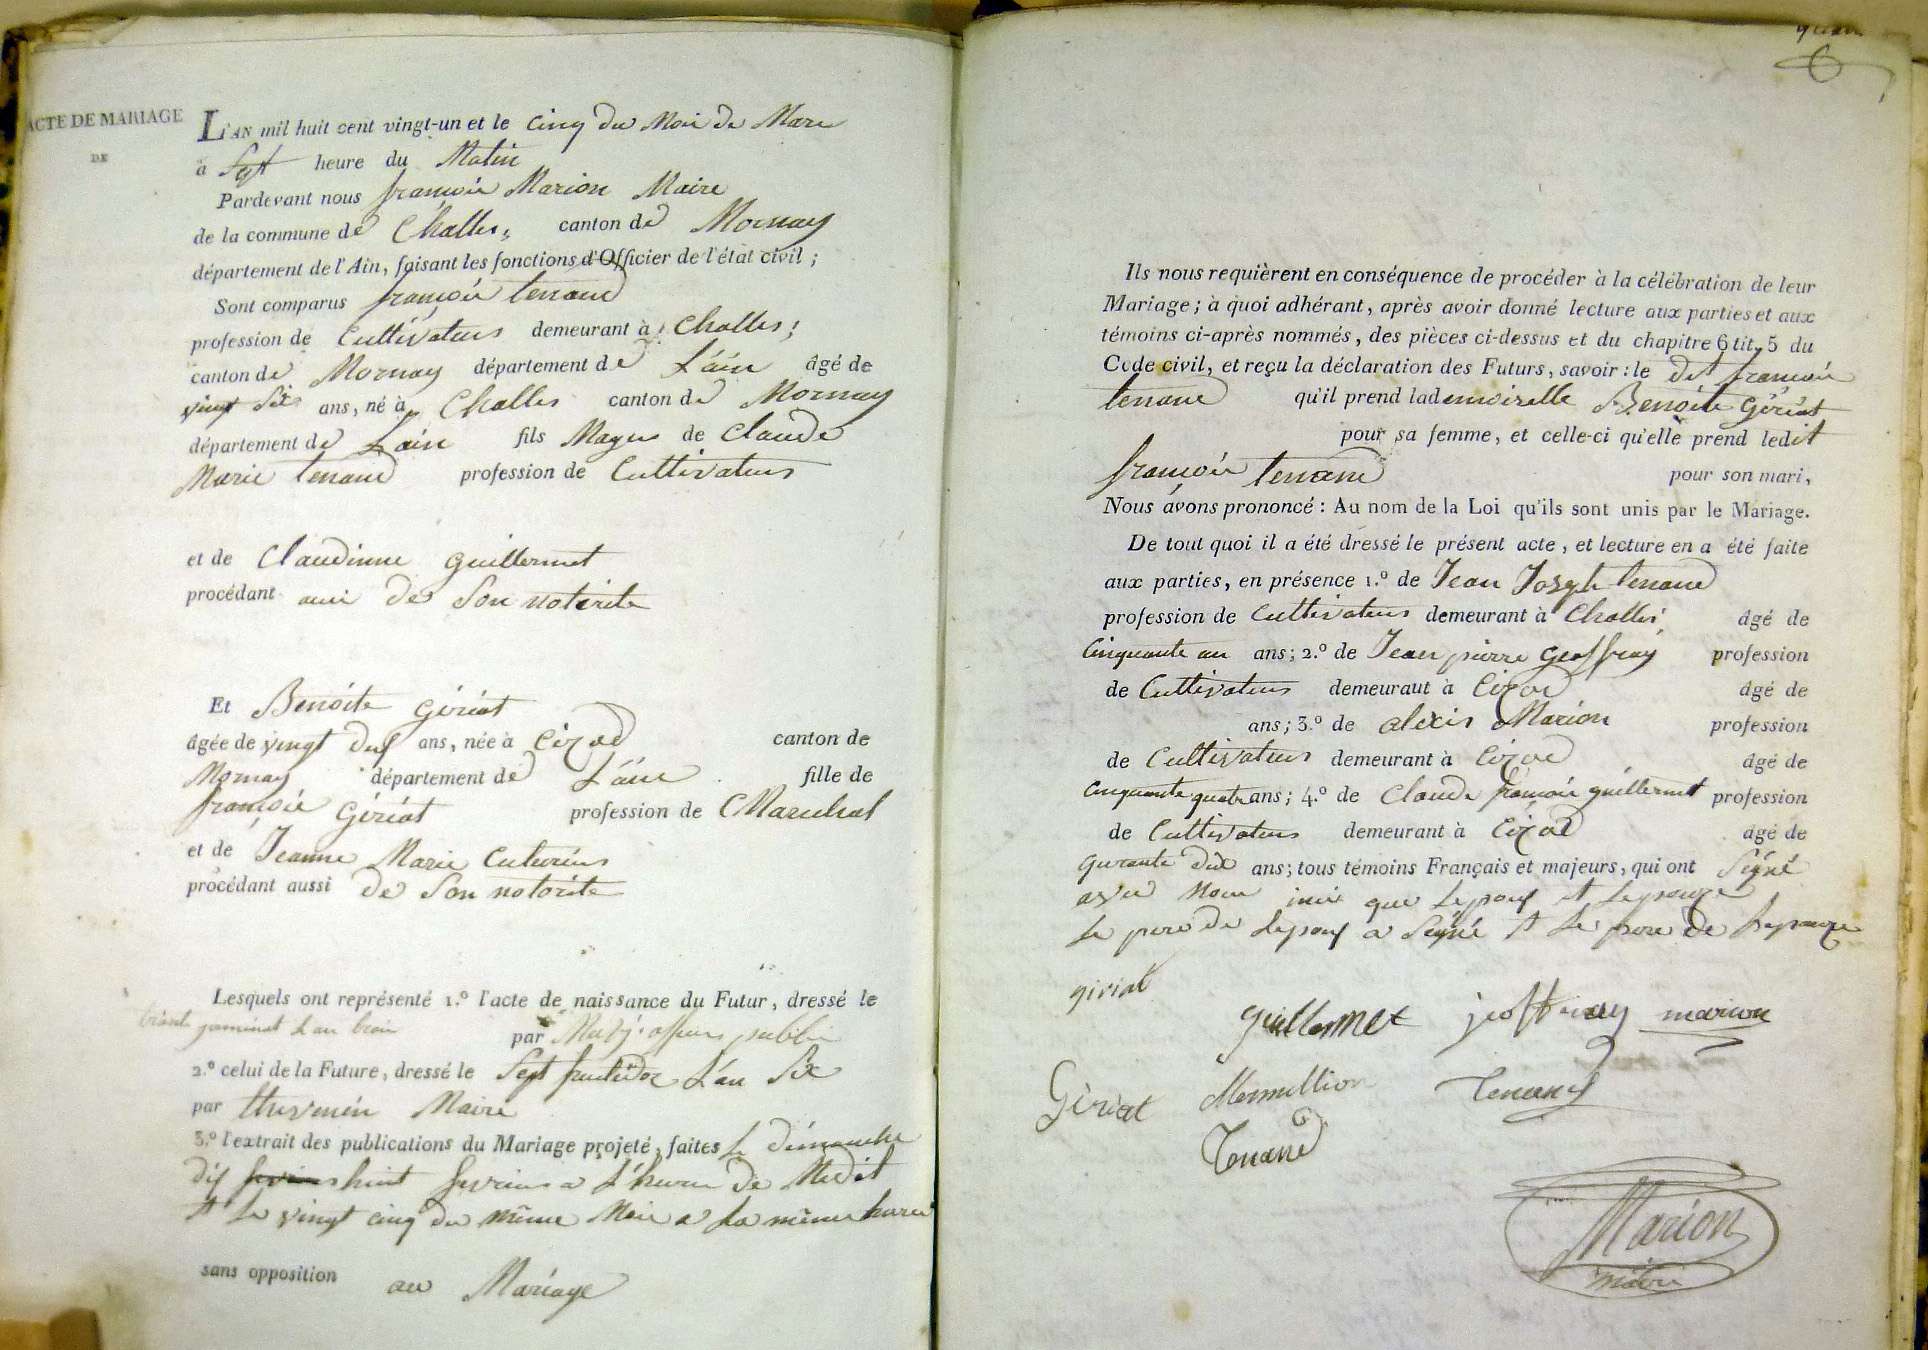 ACTE DE MARIAGE
DE
L'AN mil huit cent vingt-un et le Cinq du Mois de Mars
à Sept heure du Matin
Pardevant nous françois Marion Maire
de la commune de Challes, canton de Mornay
département de l'Ain, faisant les fonctions d'Officier de l'état civil ;
Sont comparus françois tenand
profession de Cultivateur demeurant à Challes ;
canton de Mornay département de L'ain âgé de
vingt Six ans, né à Challes canton de Mornay
département de L'ain fils Mageur de Claude
Marie tenand profession de Cultivateur
et de Claudinne Guillermet
procédant de Son notorite
Et Benoite Gériat
âgée de vingt deux ans, née à Cizod canton de
Mornay département de L'ain fille de
françois Gériat profession de Marechal
et de Jeanne Marie
procédant aussi de Son notorite
Lesquels ont représenté 1.º l'acte de naissance du Futur, dressé le
trante L'an trois par officier public
2.º celui de la Future, dressé le Sept fructidor L'an Six
par thevenin Maire
3.º l'extrait des publications du Mariage projeté, faites le démanche
dix huit fevrier a L'heure de Midit
et le vingt cinq du même Mois a La même heure
sans opposition au Mariage
6
Ils nous requièrent en conséquence de procéder à la célébration de leur
Mariage ; à quoi adhérant, après avoir donné lecture aux parties et aux
témoins ci-après nommés, des pièces ci-dessus et du chapitre 6 tit. 5 du
Code civil, et reçu la déclaration des Futurs, savoir : le dit françois
tenand qu'il prend lademoiselle Benoite Gériat
pour sa femme, et celle-ci qu'elle prend ledit
françois tenand pour son mari,
Nous avons prononcé : Au nom de la Loi qu'ils sont unis par le Mariage.
De tout quoi il a été dressé le présent acte, et lecture en a été faite
aux parties, en présence 1.º de Jean Joseph tenand
profession de Cultivateur demeurant à Challes âgé de
Cinquante un ans ; 2.º de Jean pierre Geoffray profession
de Cultivateur demeurant à Cizod âgé de
ans ; 3.º de alexis Marion profession
de Cultivateur demeurant à Cizod âgé de
Cinquante quatre ans ; 4.º de Claude françois guillermet profession
de Cultivateur demeurant à Cizod âgé de
quarante dix ans ; tous témoins Français et majeurs, qui ont Signé
avec Nous que Lepoux et Lepouze
Le pere de Lepoux a Signé et Le pere de Lepouze
giriat
guillermet geoffray marion
Gèriat Mermillion Tenand
Tenand
Marion
maire